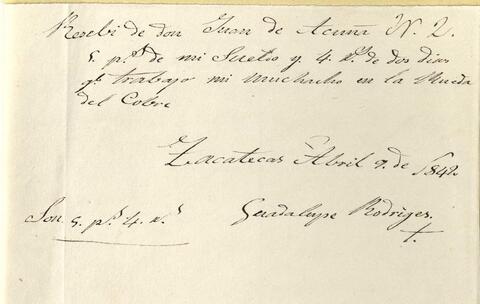 Resebi de don Juan de Acuña N. 2.
5. p.s de mi Sueldo y 4. r.s de dos dias
q.e trabajo mi muchacho en la Rueda
del Cobre
Zacatecas Abril 9. de 1842.
Son 5. p.s 4. r.s Guadalupe Rodriges.